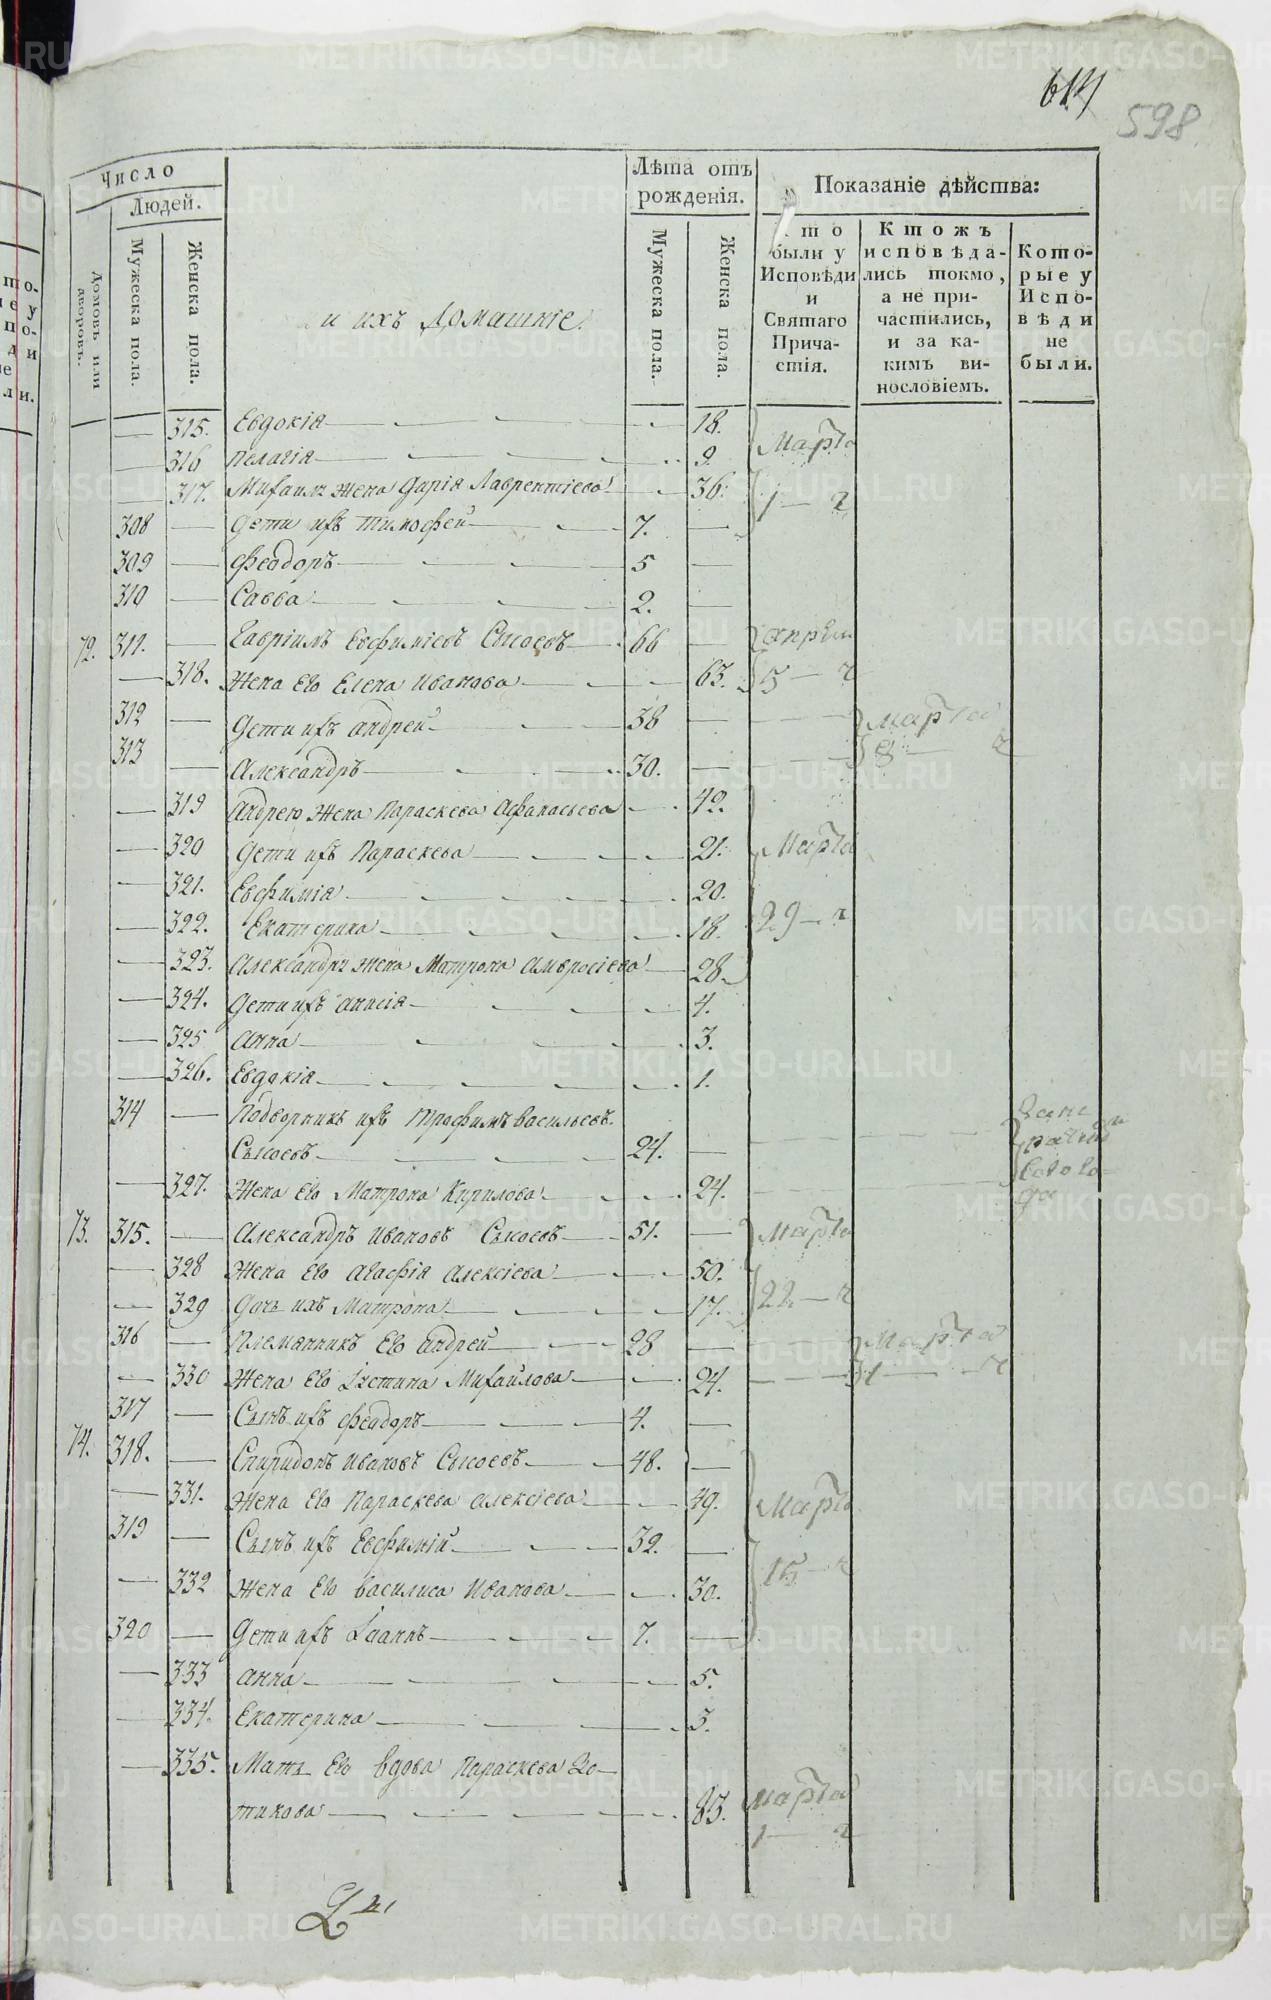 614
598
Число
Людей.
Домовъ или дворовъ.
Мужеска пола.
Женска пола.
и ихъ домашніе.
Лѣта отъ рожденія.
Мужеска пола.
Женска пола.
Показаніе дѣйства:
Кто были у Исповѣди и Святаго Причастія.
Ктожъ исповѣдались токмо, а не причастились, и за какимъ винословіемъ.
Которые у Исповѣди не были.
— 315. Евдокія — 18.
— 316 Пелагія — 9. Марта
— 317. Михаилъ жена Дарія Лаврентіева — 36. 1 — ч
308 — Дети ихъ Тимофей — 7. —
309 — Феодоръ — 5 —
310 — Савва — 2. —
72. 311. — Гавріилъ Евфиміевъ Сысоевъ — 66 — Апреля
— 318. Жена Его Елена Иванова — 63. 5 — ч
312 — Дети ихъ Андрей — 38 — Марта
313 — Александръ — 30. — 8 — ч
— 319 Андрею жена Параскева Афанасьева — 42.
— 320 Дети ихъ Параскева — 21. Марта
— 321. Евфимія — 20.
— 322. Екатерина — 18. 29 — ч
— 323. Александръ жена Матрона Амвросіева — 28.
— 324. Дети ихъ Анисія — 4.
— 325 Анна — 3.
— 326. Евдокія — 1.
314 — Подворникъ ихъ Трофимъ Васильевъ
Сысоевъ — 24. —
— 327. Жена Его Матрона Кирилова — 24.
73. 315. — Александръ Ивановъ Сысоевъ — 51. — Марта
— 328 Жена Его Агафія Алексіева — 50.
— 329 Дочь ихъ Матрона — 17. 22 — ч
316 — Племянникъ Его Андрей — 28 — Марта
— 330 Жена Его Іустина Михайлова — 24. 1 — ч
317 — Сынъ ихъ Феодоръ — 4. —
74. 318. — Спиридонъ Ивановъ Сысоевъ — 48. —
— 331. Жена Его Параскева Алексіева — 49. Марта
319 — Сынъ ихъ Евфимій — 32. —
— 332 Жена Его Василиса Иванова — 30. 15 — ч
320 — Дети ихъ Іоаннъ — 7. —
— 333 Анна — 5.
— 334. Екатерина — 3.
— 335. Мать Его вдова Параскева Зо-
тикова — 83. Марта
1 — ч
METRIKI.GASO-URAL.RU